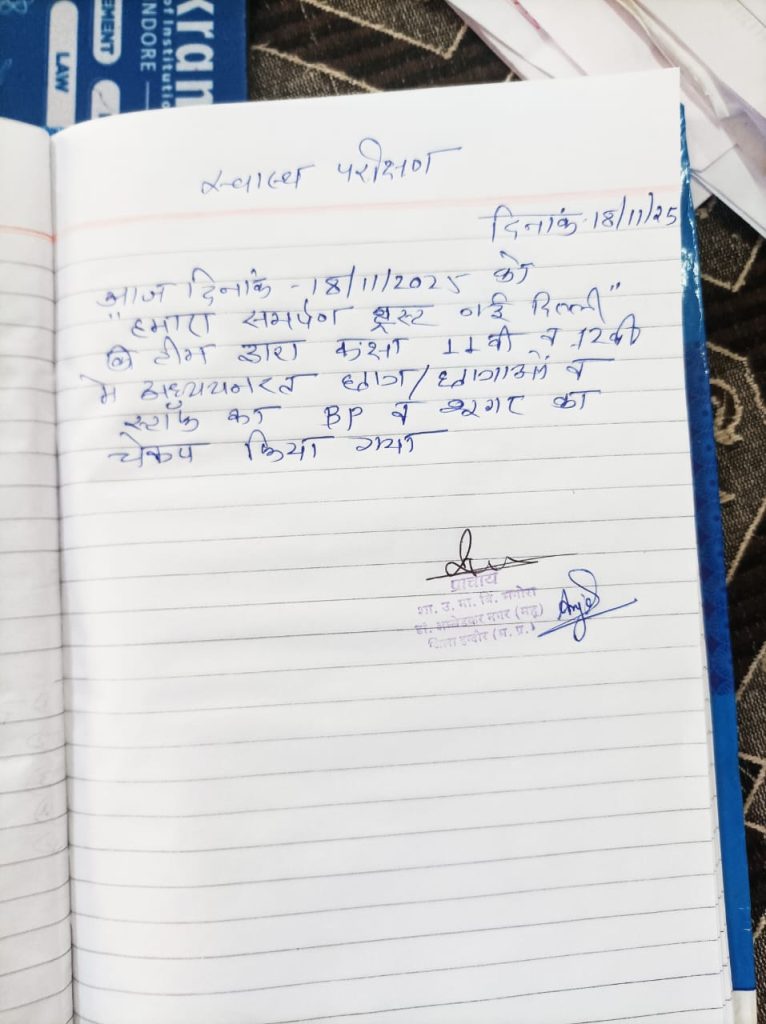 Kran
of Institutio
NDORE
EMENT
LAW
स्वास्थ परीक्षण
दिनांक-18/11/25
आज दिनांक -18/11/2025 को
"हमारा समर्पण ट्रस्ट नई दिल्ली"
की टीम द्वारा कक्षा 11वी व 12वी
मे अध्ययनरत छात्र/छात्राओं व
स्टॉफ का BP व शुगर का
चेकप किया गया
प्राचार्य
शा. उ. मा. वि.
डॉ. अम्बेडकर नगर (महू)
जिला इन्दौर (म. प्र.)